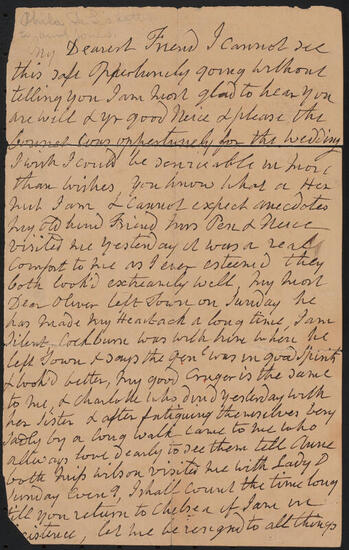 My Dearest Friend I Cannot see
this safe Oppertunely going without
telling you I am most glad to hear you
are well & yr good Neice & please the
Bonnet Goes oppertunely for the wedding
I wish I could be serviceable in more
than wishes, you know what a Her
mit I am & Cannot expect anecdotes
my old kind Friend Mrs Pen & Neice
visited me Yesterday it was a real
Comfort to me as I ever esteem'd they
both look'd extreamly well, my most
Dear Oliver left Town on Sunday he
has made my Heartack a long time, I am
silent Cockburn was with him when he
left Town & says the Genl was in good Spirits
& look'd better, my good Cruger is the same
to me, & Charlotte who dind yesterday with
her Sister & after fatiguing themselves very
sadly by a long walk came to me who
allways love dearly to see them tell Anne
both Miss Wilson visited me with Lady D
Sunday Eveng, I shall Count the time long
till you return to Chelsea if I am in
existence, let me be resignd to all things